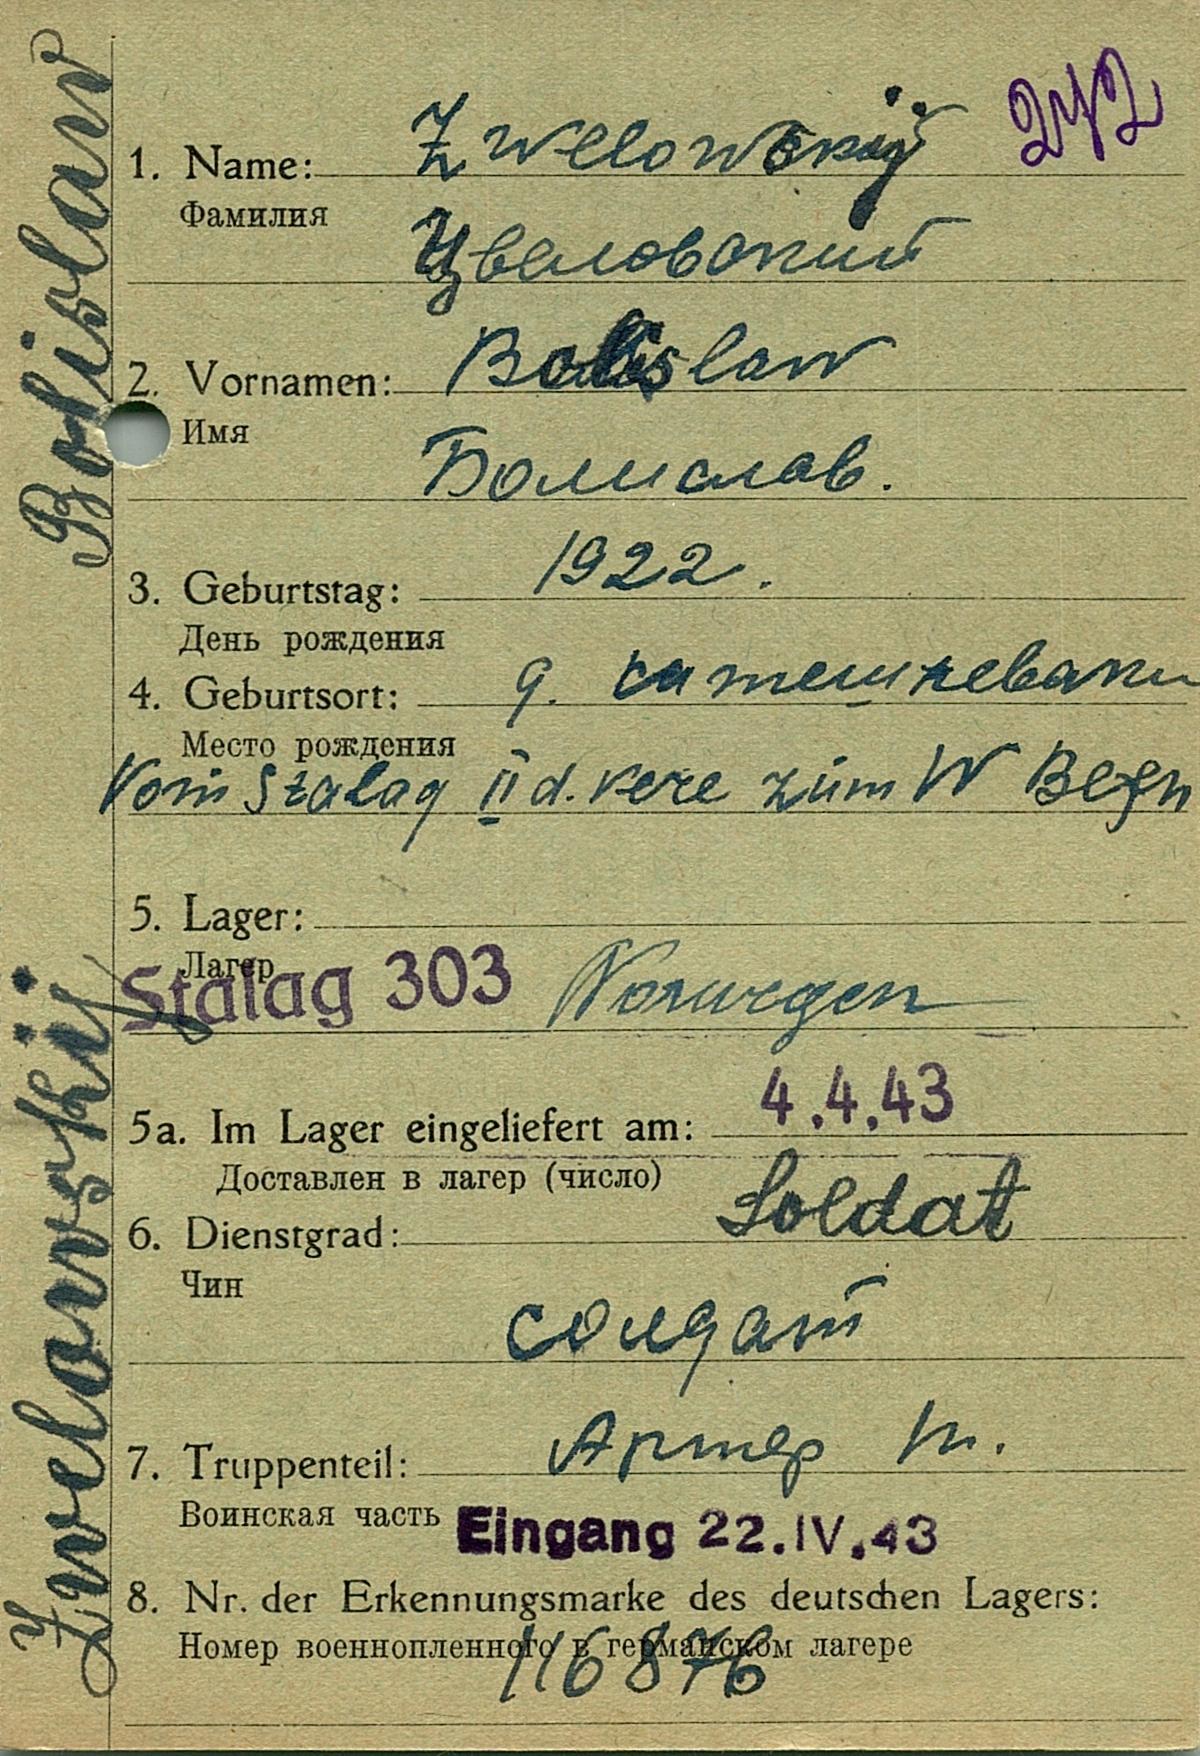 242
1. Name: Zwellowskij
Фамилия
Цвеловский
2. Vornamen: Bolislaw
Имя
Болислав.
3. Geburtstag: 1922.
День рождения
4. Geburtsort: д.
Место рождения
Vom Stalag II d. zum W
5. Lager:
Лагер
Stalag 303 Norwegen
5a. Im Lager eingeliefert am: 4.4.43
Доставлен в лагер (число)
6. Dienstgrad: Soldat
Чин
солдат
7. Truppenteil: Артер
Воинская часть
Eingang 22.IV.43
8. Nr. der Erkennungsmarke des deutschen Lagers:
Номер военнопленного в германском лагере
116876
Zwelowskij Bolislaw